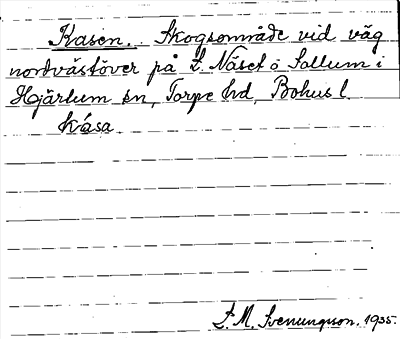 Kasen. Skogsområde vid väg
nordväståver på L. Näset å Sollum i
Hjärtum sn, Torpe hd, Bohusl.
Kåsa
L. M. Svenungson. 1935.